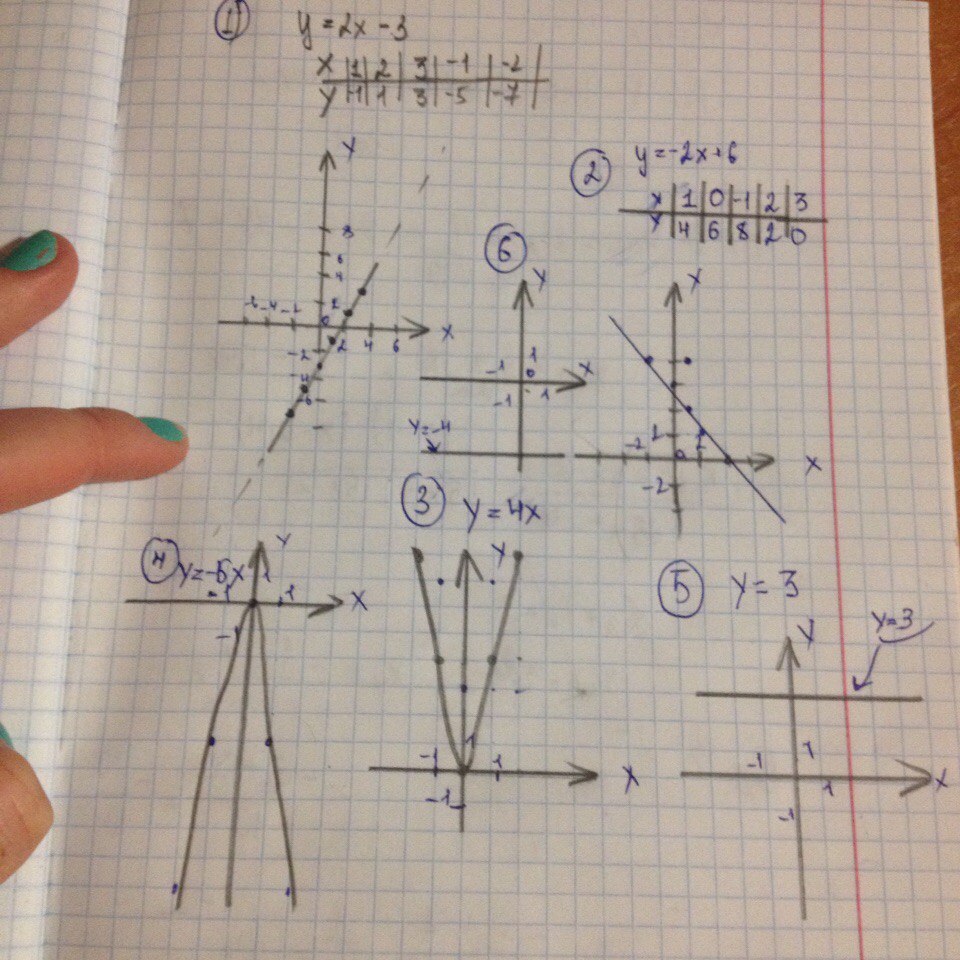 1) y = 2x - 3
x | 1 | 2 | 3 | -1 | -2
y | -1 | 1 | 3 | -5 | -7
2 y = -2x + 6
x | 1 | 0 | -1 | 2 | 3
y | 4 | 6 | 8 | 2 | 0
y
8
6
4
2
-4 -2 0 2 4 6 x
-2
-4
-6
6
y
1
-1 0 x
-1 1
y = -4
y
2
-2 0 2 x
-2
3 y = 4x
y
1
-1 1 x
-1
4 y = -5x
y
1
-1 1 x
-1
5 y = 3
y
y = 3
1
-1 1 x
-1